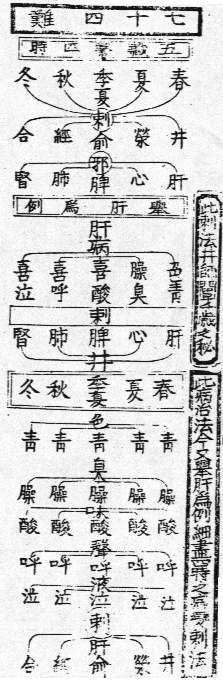 七十四難
五臟繫四時
春 夏 季夏 秋 冬
刺
井 滎 俞 經 合
邪
肝 心 脾 肺 腎
舉肝爲例
肝病
色青 臊臭 喜酸 喜呼 喜泣
刺
肝 心 脾 肺 腎
井
春 夏 季夏 秋 冬
色
青 青 青 青 青
臭
臊 臊 臊 臊 臊
味
酸 酸 酸 酸 酸
聲
呼 呼 呼 呼 呼
液
泣 泣 泣 泣 泣
刺
肝
井 滎 俞 經 合
此刺法井
歲之秘
此病治法今又舉肝爲例細畫四時之
刺法